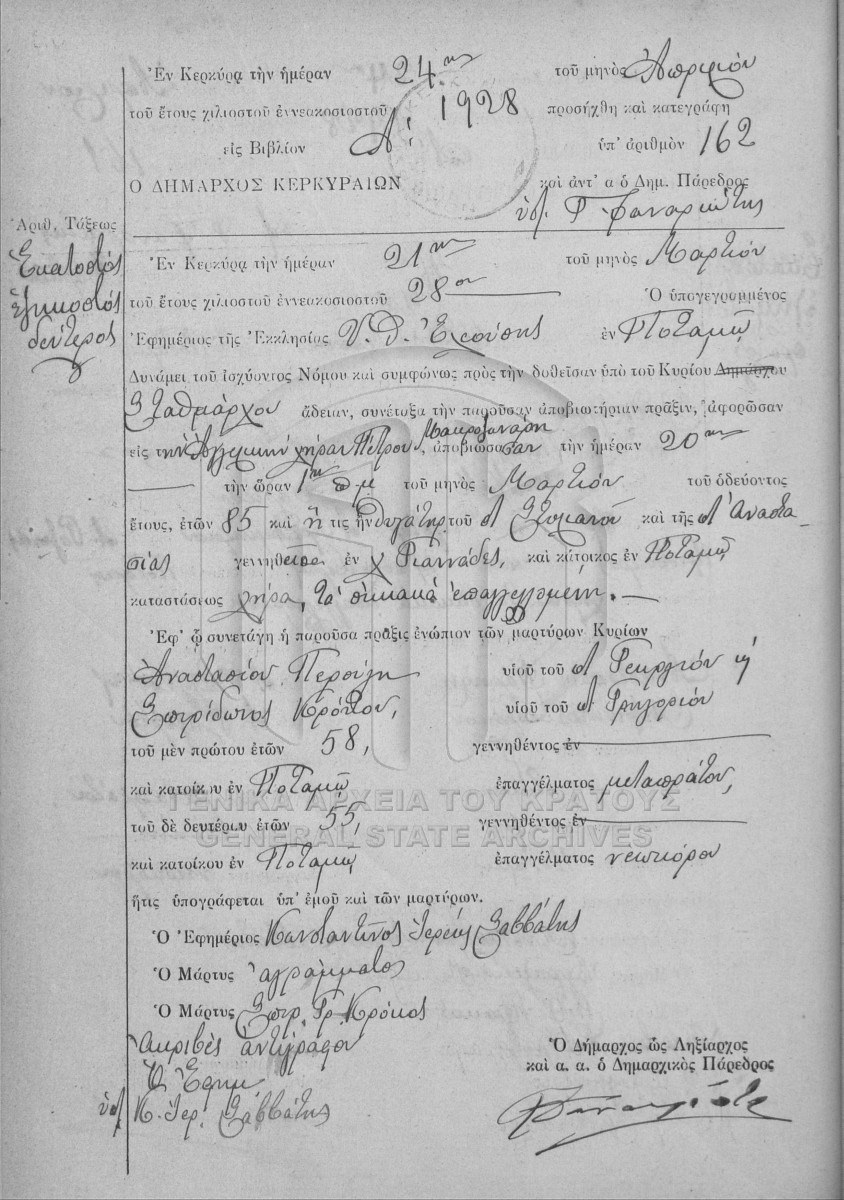 Ἐν Κερκύρᾳ τὴν ἡμέραν 24ην τοῦ μηνὸς Ἀπριλίου
τοῦ ἔτους χιλιοστοῦ ἐννεακοσιοστοῦ 1928 προσήχθη καὶ κατεγράφη
εἰς Βιβλίον Α! ὑπ' ἀριθμὸν 162
Ο ΔΗΜΑΡΧΟΣ ΚΕΡΚΥΡΑΙΩΝ καὶ ἀντ' α ὁ Δημ. Πάρεδρος
ὑπ. Γ Φαναριώτης
Ἀριθ. Τάξεως
Ἑκατοστὸς
ἑξηκοστὸς
δεύτερος
Ἐν Κερκύρᾳ τὴν ἡμέραν 21ην τοῦ μηνὸς Μαρτίου
τοῦ ἔτους χιλιοστοῦ ἐννεακοσιοστοῦ 28ου Ὁ ὑπογεγραμμένος
Ἐφημέριος τῆς Ἐκκλησίας Υ. Θ. Ἐλεούσης ἐν Ποταμῷ
Δυνάμει τοῦ ἰσχύοντος Νόμου καὶ συμφώνως πρὸς τὴν δοθεῖσαν ὑπὸ τοῦ Κυρίου Δημάρχου
Σταθμάρχου ἄδειαν, συνέταξα τὴν παροῦσαν ἀποβιωτήριαν πρᾶξιν, ἀφορῶσαν
εἰς τὴν Ἀγγελικὴν χήραν Πέτρου, ἀποβιώσασαν τὴν ἡμέραν 20ην
τὴν ὥραν 1ην π μ τοῦ μηνὸς Μαρτίου τοῦ ὁδεύοντος
ἔτους, ἐτῶν 85 καὶ ἥ τις ἦν θυγάτηρ τοῦ Στυλιανοῦ καὶ τῆς Ἀναστα-
σίας γεννηθεῖσα ἐν χ Γιαννάδες, καὶ κάτοικος ἐν Ποταμῷ
καταστάσεως χήρα, τὰ οἰκιακὰ ἐπαγγελλομένη. —
Ἐφ' ᾧ συνετάγη ἡ παροῦσα πρᾶξις ἐνώπιον τῶν μαρτύρων Κυρίων
Ἀναστασίου Περούλη υἱοῦ τοῦ Γεωργίου ᾖ
Σπυρίδωνος Κρόκου, υἱοῦ τοῦ Γρηγορίου
τοῦ μὲν πρώτου ἐτῶν 58, γεννηθέντος ἐν
καὶ κατοίκου ἐν Ποταμῷ ἐπαγγέλματος μεταπράτου,
τοῦ δὲ δευτέρου ἐτῶν 55, γεννηθέντος ἐν
καὶ κατοίκου ἐν Ποταμῷ ἐπαγγέλματος νεωκόρου
ἥτις ὑπογράφεται ὑπ' ἐμοῦ καὶ τῶν μαρτύρων.
Ὁ Ἐφημέριος Κωνσταντῖνος Ἱερεὺς Σαββάτης
Ὁ Μάρτυς ἀγράμματος
Ὁ Μάρτυς Σπυρ. Γρ. Κρόκος
Ἀκριβὲς ἀντίγραφον
Ὁ Ἐφημ
ὑπ. Κ. Ἱερ. Σαββάτης
Ὁ Δήμαρχος ὡς Ληξίαρχος
καὶ α. α. ὁ Δημαρχικὸς Πάρεδρος
ΓΕΝΙΚΑ ΑΡΧΕΙΑ ΤΟΥ ΚΡΑΤΟΥΣ
GENERAL STATE ARCHIVES